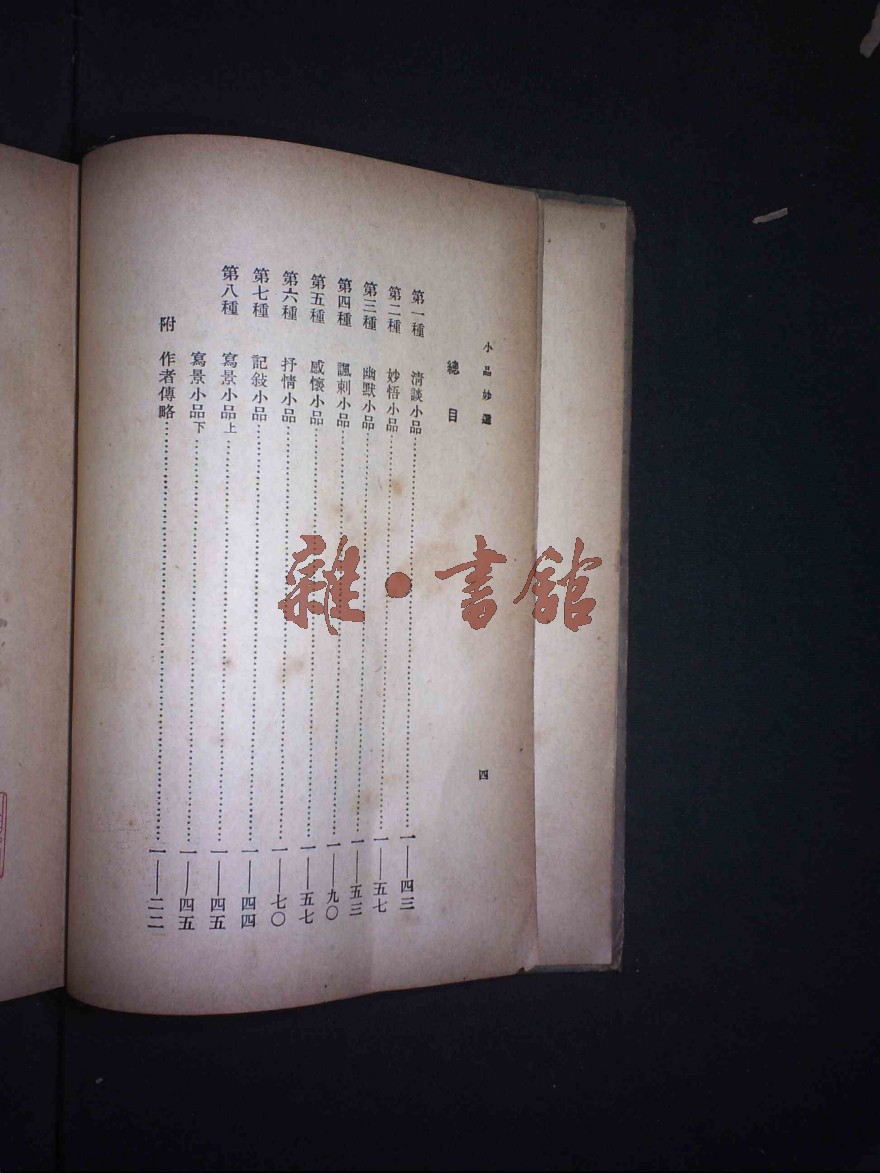 小品妙選
四
總目
第一種 清談小品……一——四三
第二種 妙悟小品……一——五七
第三種 幽默小品……一——五三
第四種 諷刺小品……一——九〇
第五種 感懷小品……一——五七
第六種 抒情小品……一——七〇
第七種 記敍小品……一——四四
第八種 寫景小品上……一——四五
寫景小品下……一——四五
附 作者傳略……一——二二
雜·書館